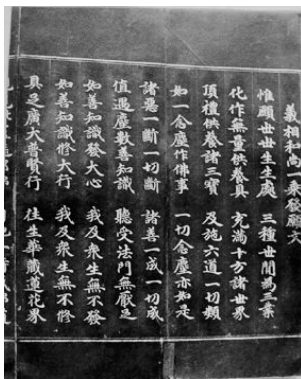 義相和尚一乗發願文
惟願世世生生處　三種世間為三業
化作無量供養具　充滿十方諸世界
頂禮供養諸三寶　及施六道一切類
如一念塵作佛事　一切念塵亦如是
諸惡一斷一切斷　諸善一成一切成
值遇塵數善知識　聽受法門無厭足
如善知識發大心　我及衆生無不發
如善知識修大行　我及衆生無不修
具足廣大普賢行　往生華藏蓮花界